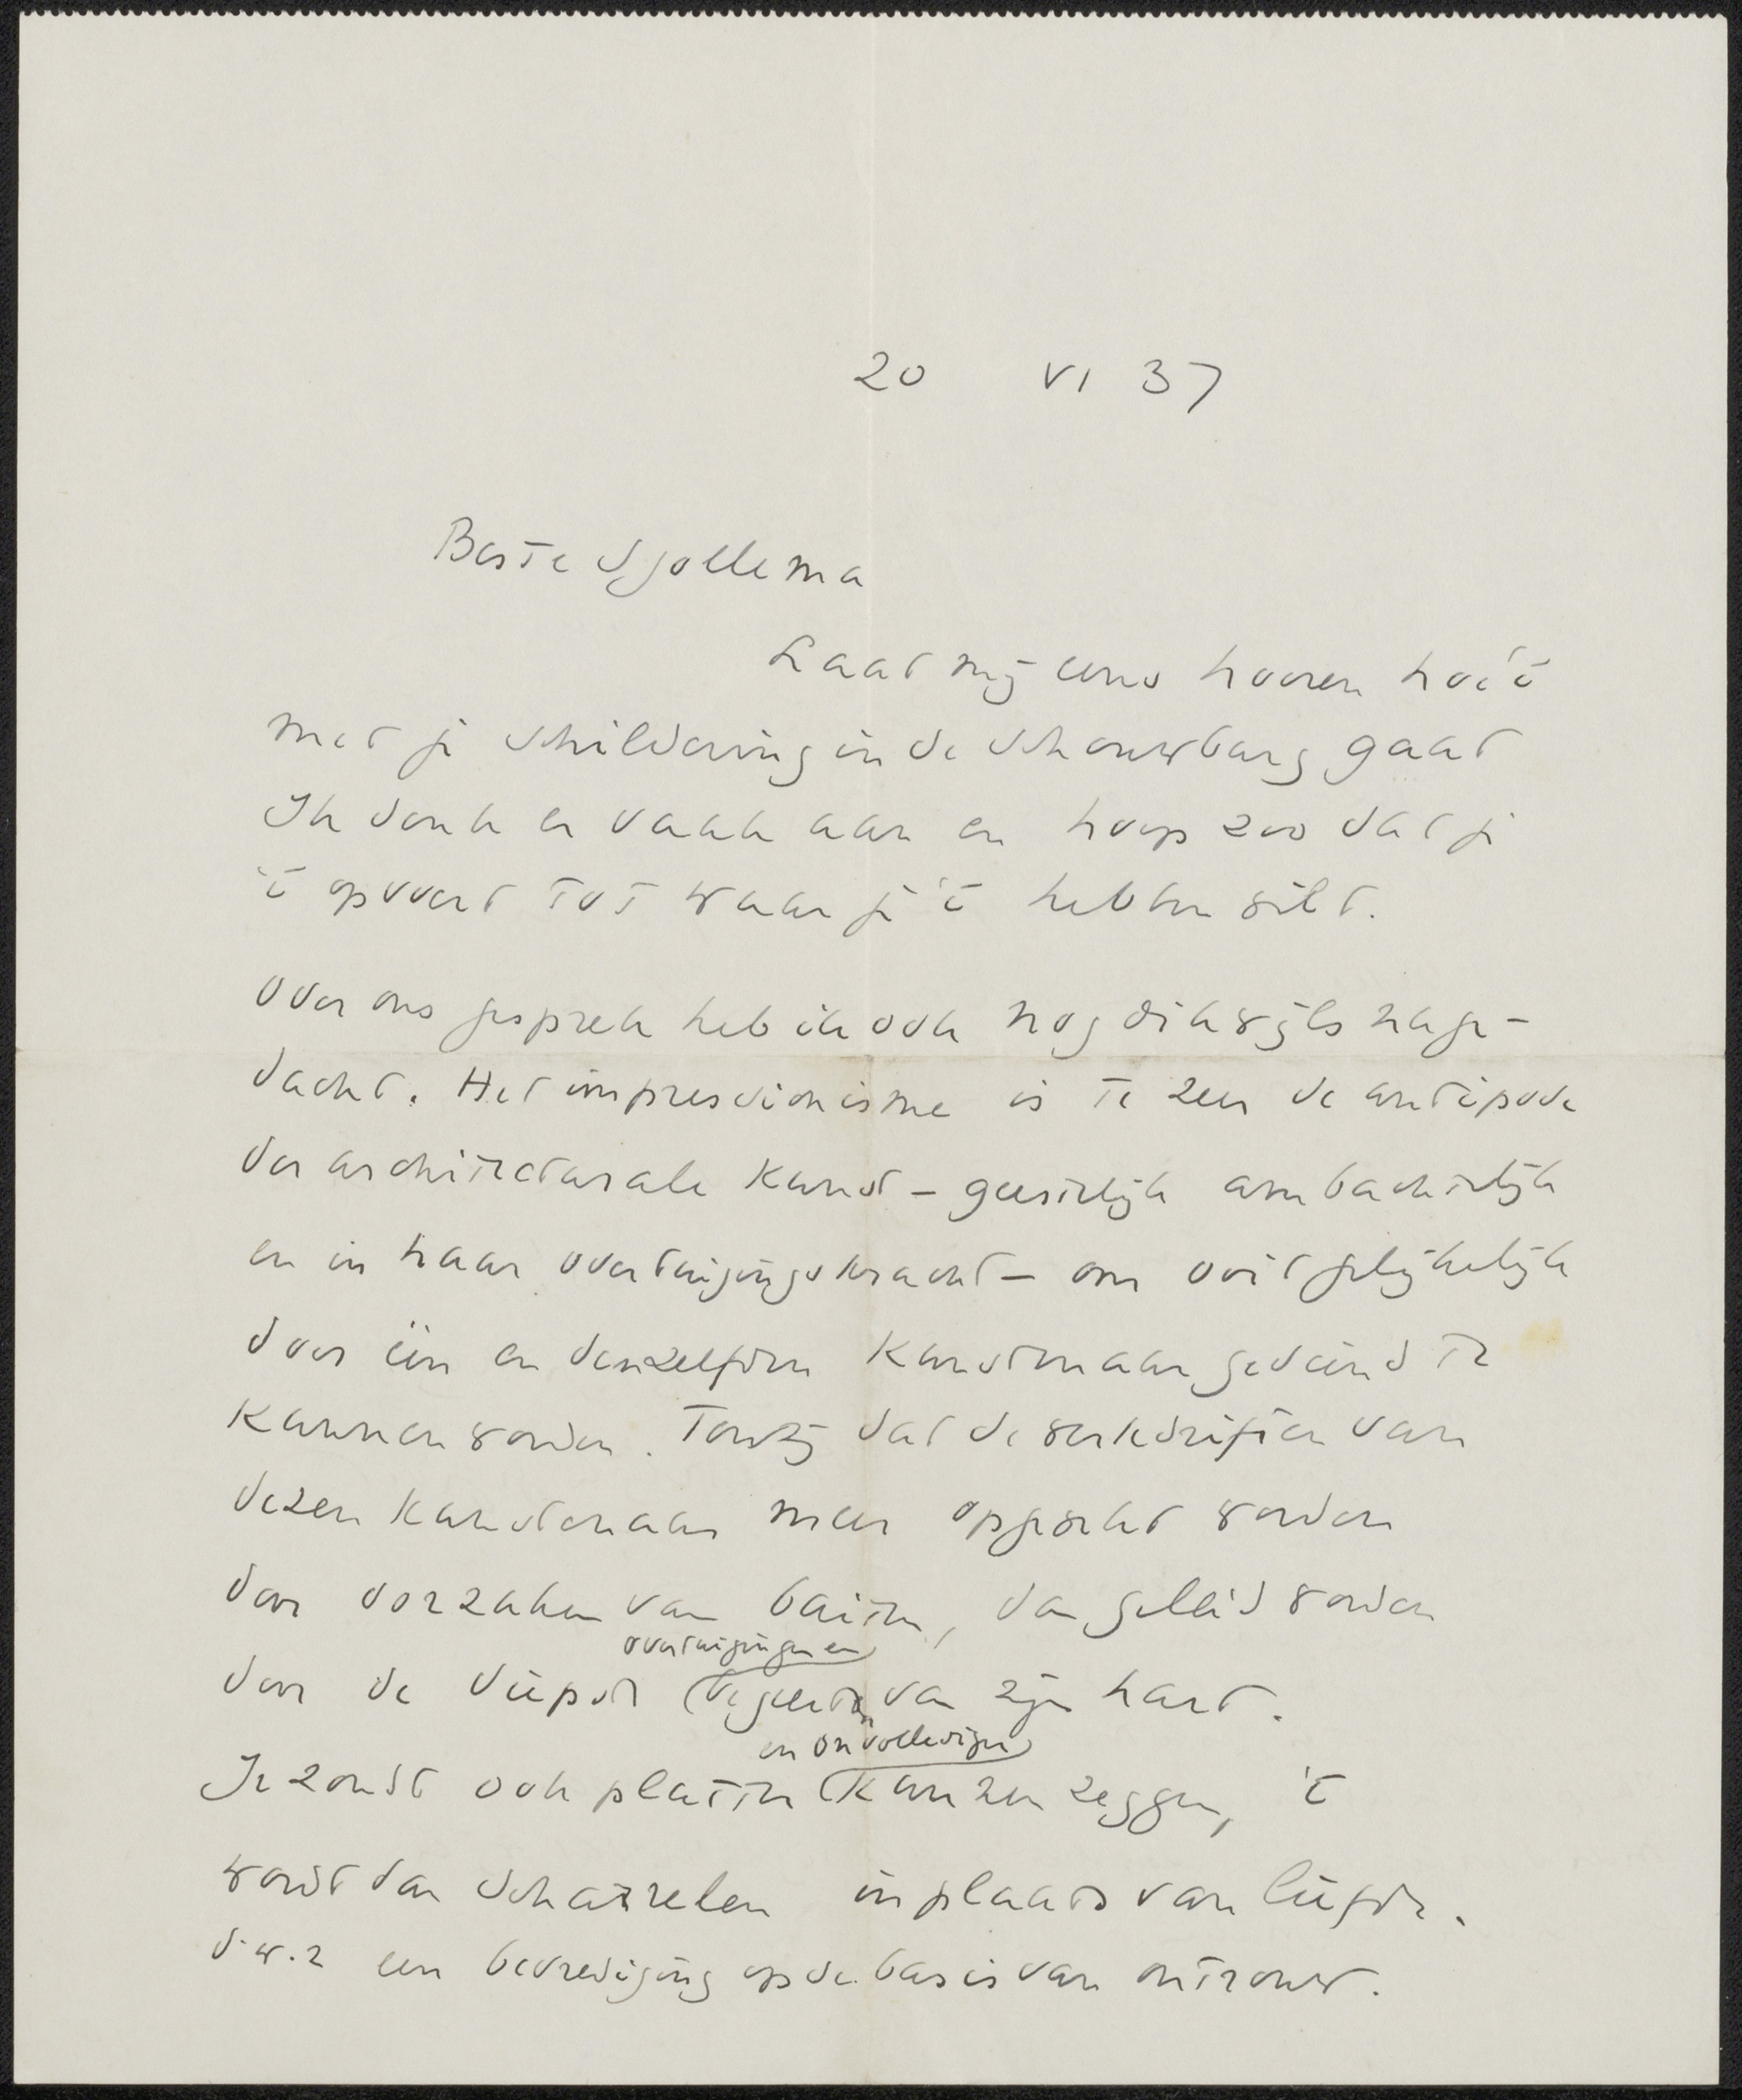 20 VI 37
Beste Sjollema
Laat mij eens hooren hoe 't
met je schildering in de schouwburg gaat
Ik denk er vaak aan en hoop zoo dat je
't opvoert tot waar je 't hebben wilt.
Over ons gesprek heb ik ook nog dikwijls nage-
dacht. Het impressionisme is te zeer de antipode
der architecturale kunst – geestelijk ambachtelijk
en in haar overtuigingskracht – om ooit gelijkelijk
door één en denzelfden kunstenaar gediend te
kunnen worden. Tenzij dat de werkdriften van
dezen kunstenaar meer opgewekt worden
door oorzaken van buiten, dan geleid worden
overtuigingen en
door de diepste begeerten van zijn hart.
en onvollediger
Je zoudt ook platter kunnen zeggen, 't
wordt dan scharrelen in plaats van liefde.
d.w.z een bevrediging op de basis van ontrouw.